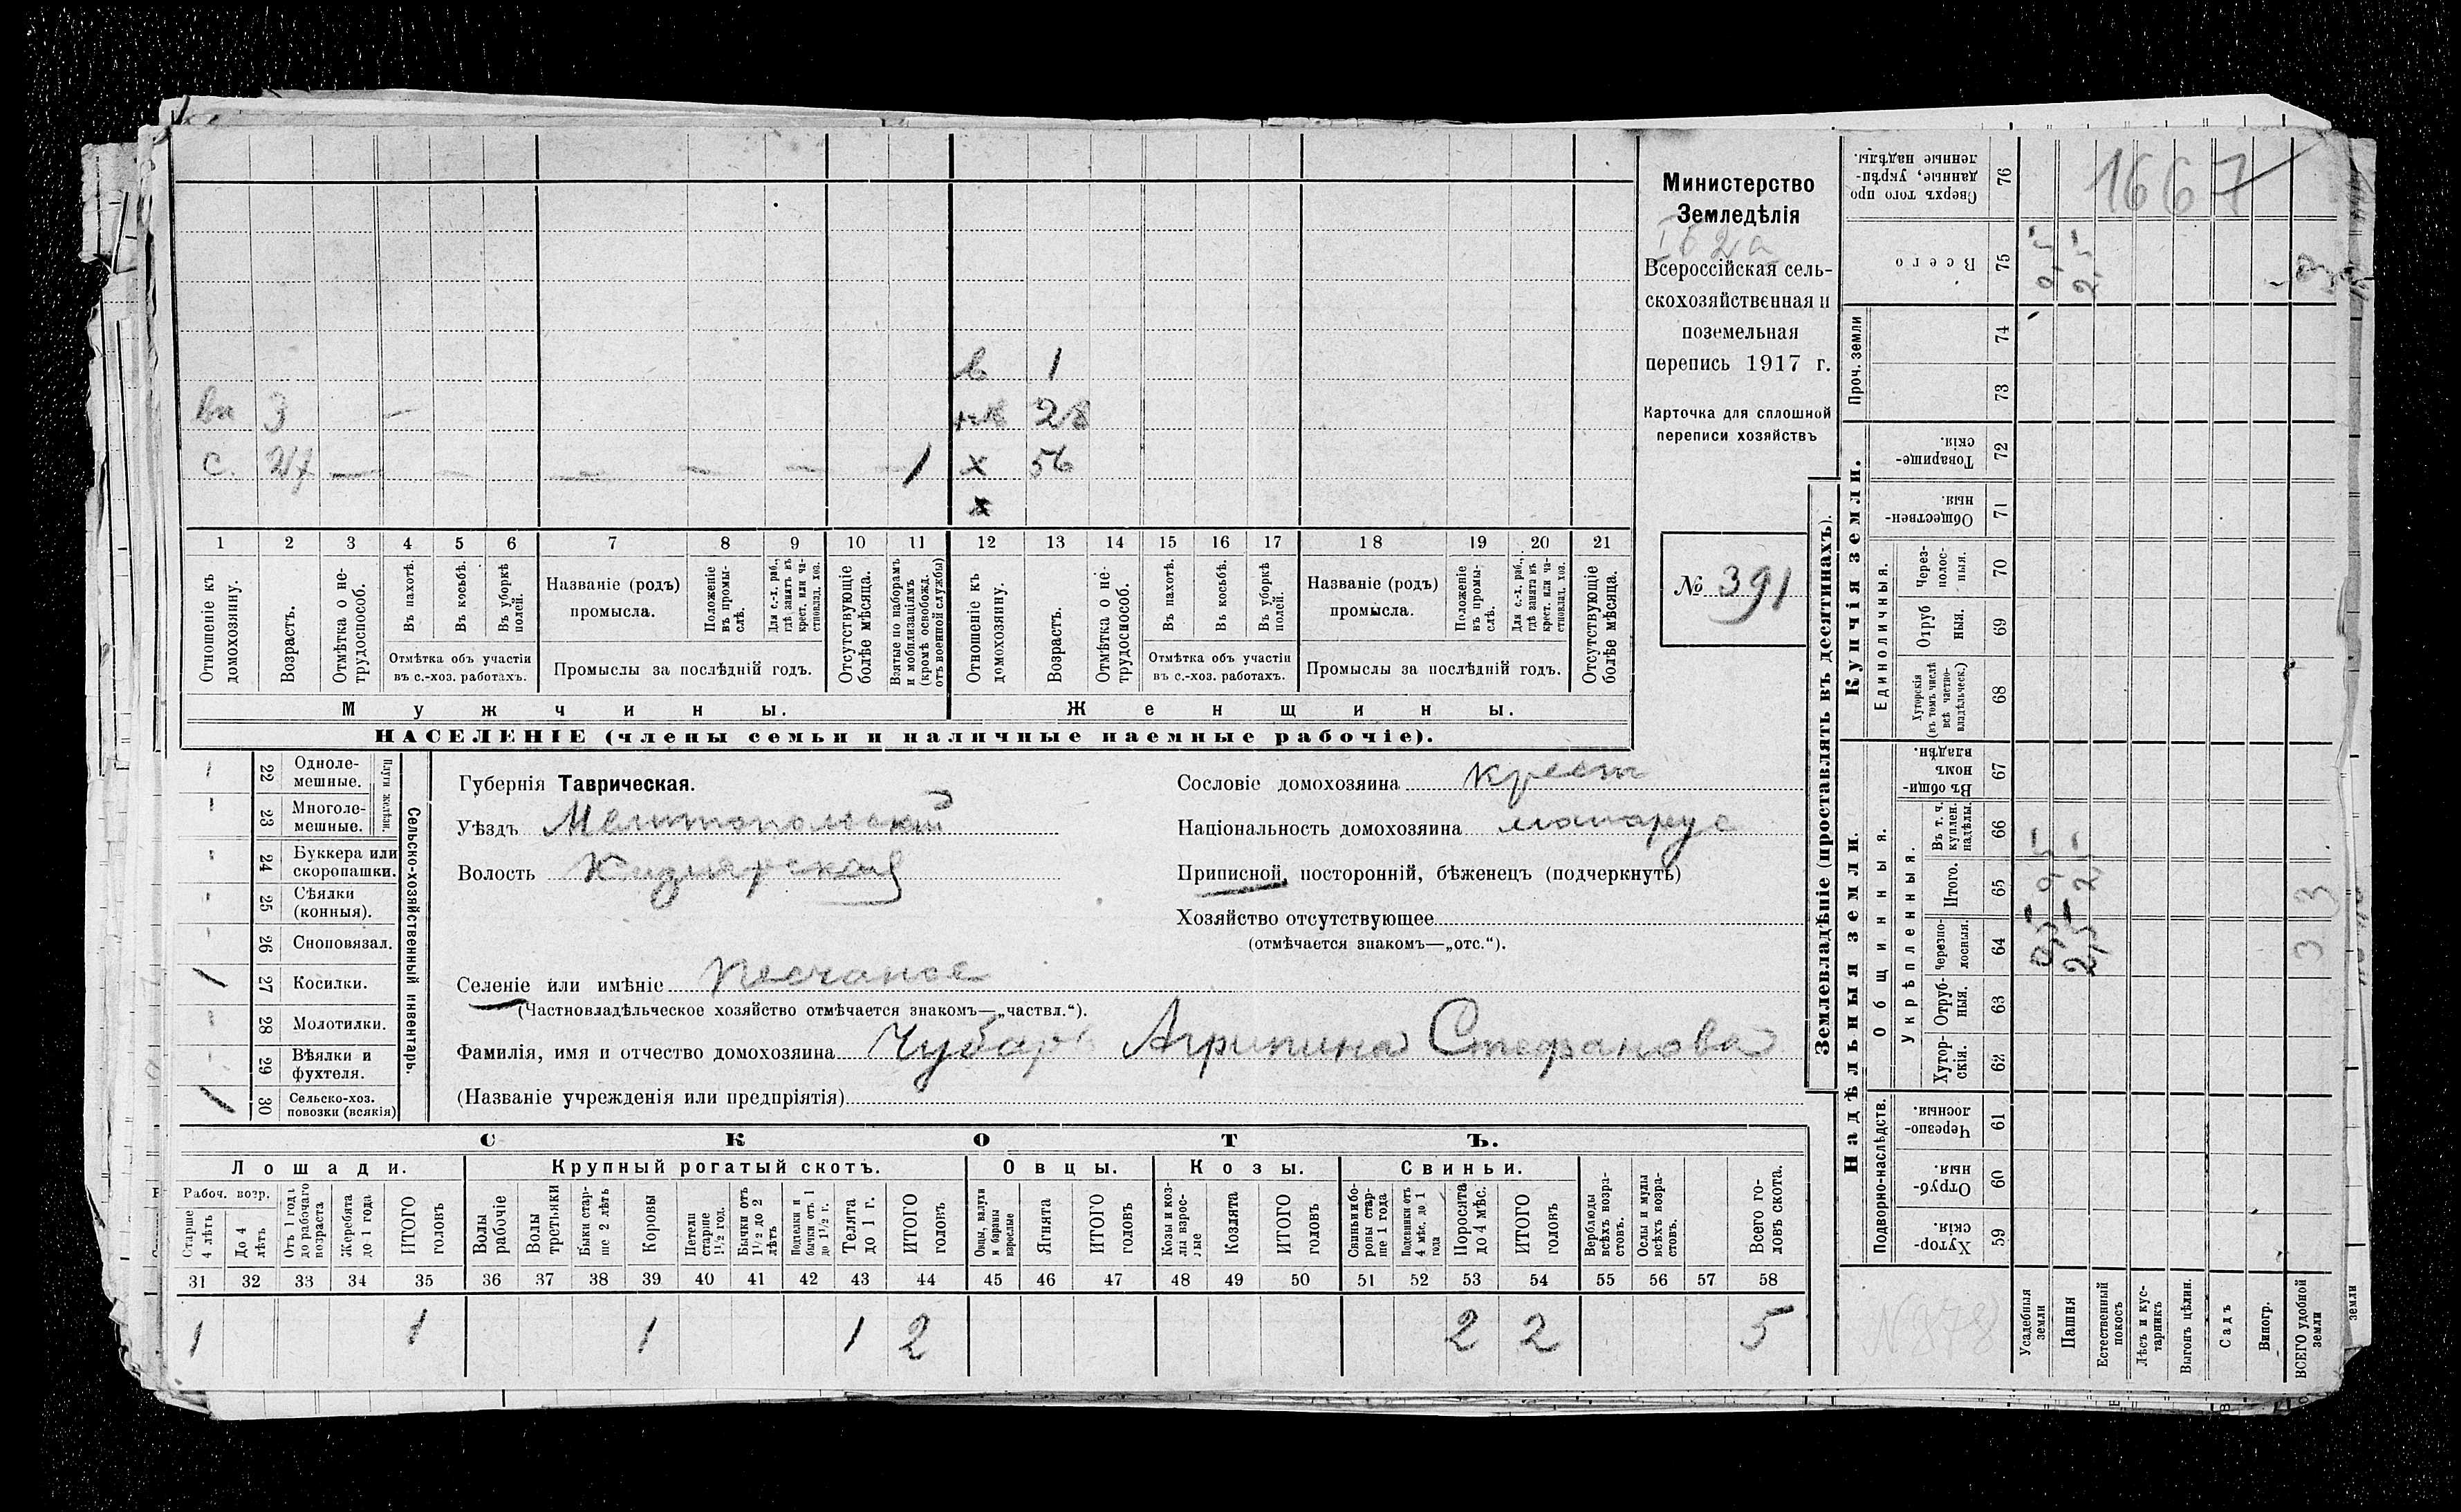 1667
Министерство
Земледѣлія
Всероссійская сель-
скохозяйственная и
поземельная
перепись 1917 г.
Карточка для сплошной
переписи хозяйствъ
№ 391
в 1
вн 3 — нв 28
с. 27 — — — — — 1 х 56
х
1 2 3 4 5 6 7 8 9 10 11 12 13 14 15 16 17 18 19 20 21
Отношеніе къ домохозяину.
Возрастъ.
Отмѣтка о не-трудоспособ.
Въ пахотѣ.
Въ косьбѣ.
Въ уборкѣ полей.
Отмѣтка объ участіи
въ с.-хоз. работахъ.
Названіе (родъ)
промысла.
Положеніе въ промы-слѣ.
Для с.-х. раб., гдѣ занятъ въ крест. или ча-стновлад. хоз.
Промыслы за послѣдній годъ.
Отсутствующіе болѣе мѣсяца.
Взятые по наборамъ и мобилизаціямъ (кромѣ освобожд. отъ военной службы)
Отношеніе къ домохозяину.
Возрастъ.
Отмѣтка о не-трудоспособ.
Въ пахотѣ.
Въ косьбѣ.
Въ уборкѣ полей.
Отмѣтка объ участіи
въ с.-хоз. работахъ.
Названіе (родъ)
промысла.
Положеніе въ промы-слѣ.
Для с.-х. раб., гдѣ занята въ крест. или ча-стновлад. хоз.
Промыслы за послѣдній годъ.
Отсутствующіе болѣе мѣсяца.
Мужчины. Женщины.
НАСЕЛЕНІЕ (члены семьи и наличные наемные рабочіе).
Сельско-хозяйственный инвентарь.
Плуги желѣзн.
22 Одноле-мешные.
23 Многоле-мешные.
24 Буккера или скоропашки.
25 Сѣялки (конныя).
26 Сноповязал.
1 27 Косилки.
28 Молотилки.
29 Вѣялки и фухтеля.
1 30 Сельско-хоз. повозки (всякія)
Губернія Таврическая.
Уѣздъ Мелитопольскій
Волость Кизіярская
Селеніе или имѣніе Песчаное
(Частновладѣльческое хозяйство отмѣчается знакомъ—„частвл.“).
Фамилія, имя и отчество домохозяина Чубарь Агрипина Стефанова
(Названіе учрежденія или предпріятія)
Сословіе домохозяина крест
Національность домохозяина малорус
Приписной, посторонній, бѣженецъ (подчеркнуть)
Хозяйство отсутствующее
(отмѣчается знакомъ—„отс.“).
СКОТЪ.
Лошади. Крупный рогатый скотъ. Овцы. Козы. Свиньи.
Рабоч. возр.
Старше 4 лѣтъ
До 4 лѣтъ
Отъ 1 года до рабочаго возраста
Жеребята до 1 года
ИТОГО головъ
Волы рабочіе
Волы третьяки
Быки стар-ше 2 лѣтъ
Коровы
Нетели старше 1½ год.
Бычки отъ 1½ до 2 лѣтъ
Подтелки и бычки отъ 1 до 1½ г.
Телята до 1 г.
ИТОГО головъ
Овцы, валухи и бараны взрослые
Ягнята
ИТОГО головъ
Козы и коз-лы взрос-лые
Козлята
ИТОГО головъ
Свиньи и бо-ровы стар-ше 1 года
Подсвинки отъ 4 мѣс. до 1 года
Поросята до 4 мѣс.
ИТОГО головъ
Верблюды всѣхъ возра-стовъ.
Ослы и мулы всѣхъ возра-стовъ.
Всего го-ловъ скота.
31 32 33 34 35 36 37 38 39 40 41 42 43 44 45 46 47 48 49 50 51 52 53 54 55 56 57 58
1 1 1 1 2 2 2 5
Землевладѣніе (проставлять въ десятинахъ).
Надѣльныя земли. Купчія земли.
Подворно-наслѣдств.
Общинныя.
Укрѣпленныя.
Единоличныя.
Проч. земли
Хутор-скія. 59
Отруб-ныя. 60
Черезпо-лосныя. 61
Хутор-скія. 62
Отруб-ныя. 63
Черезпо-лосныя. 64
Итого. 65
Въ т. ч. куплен. надѣлы. 66
Въ общи-номъ владѣн. 67
Хуторскія (въ томъ числѣ всѣ частно-владѣльческ.) 68
Отруб ныя. 69
Через-полос-ныя. 70
Обществен-ныя. 71
Товарище-скія. 72
73
74
Всего 75
Сверхъ того про данные, укрѣп-ленные надѣлы. 76
Усадебныя земли
Пашня
Естественный покосъ
Лѣсъ и кус-тарникъ
Выгонъ цѣлин.
Садъ
Виногр.
ВСЕГО удобной земли
земли